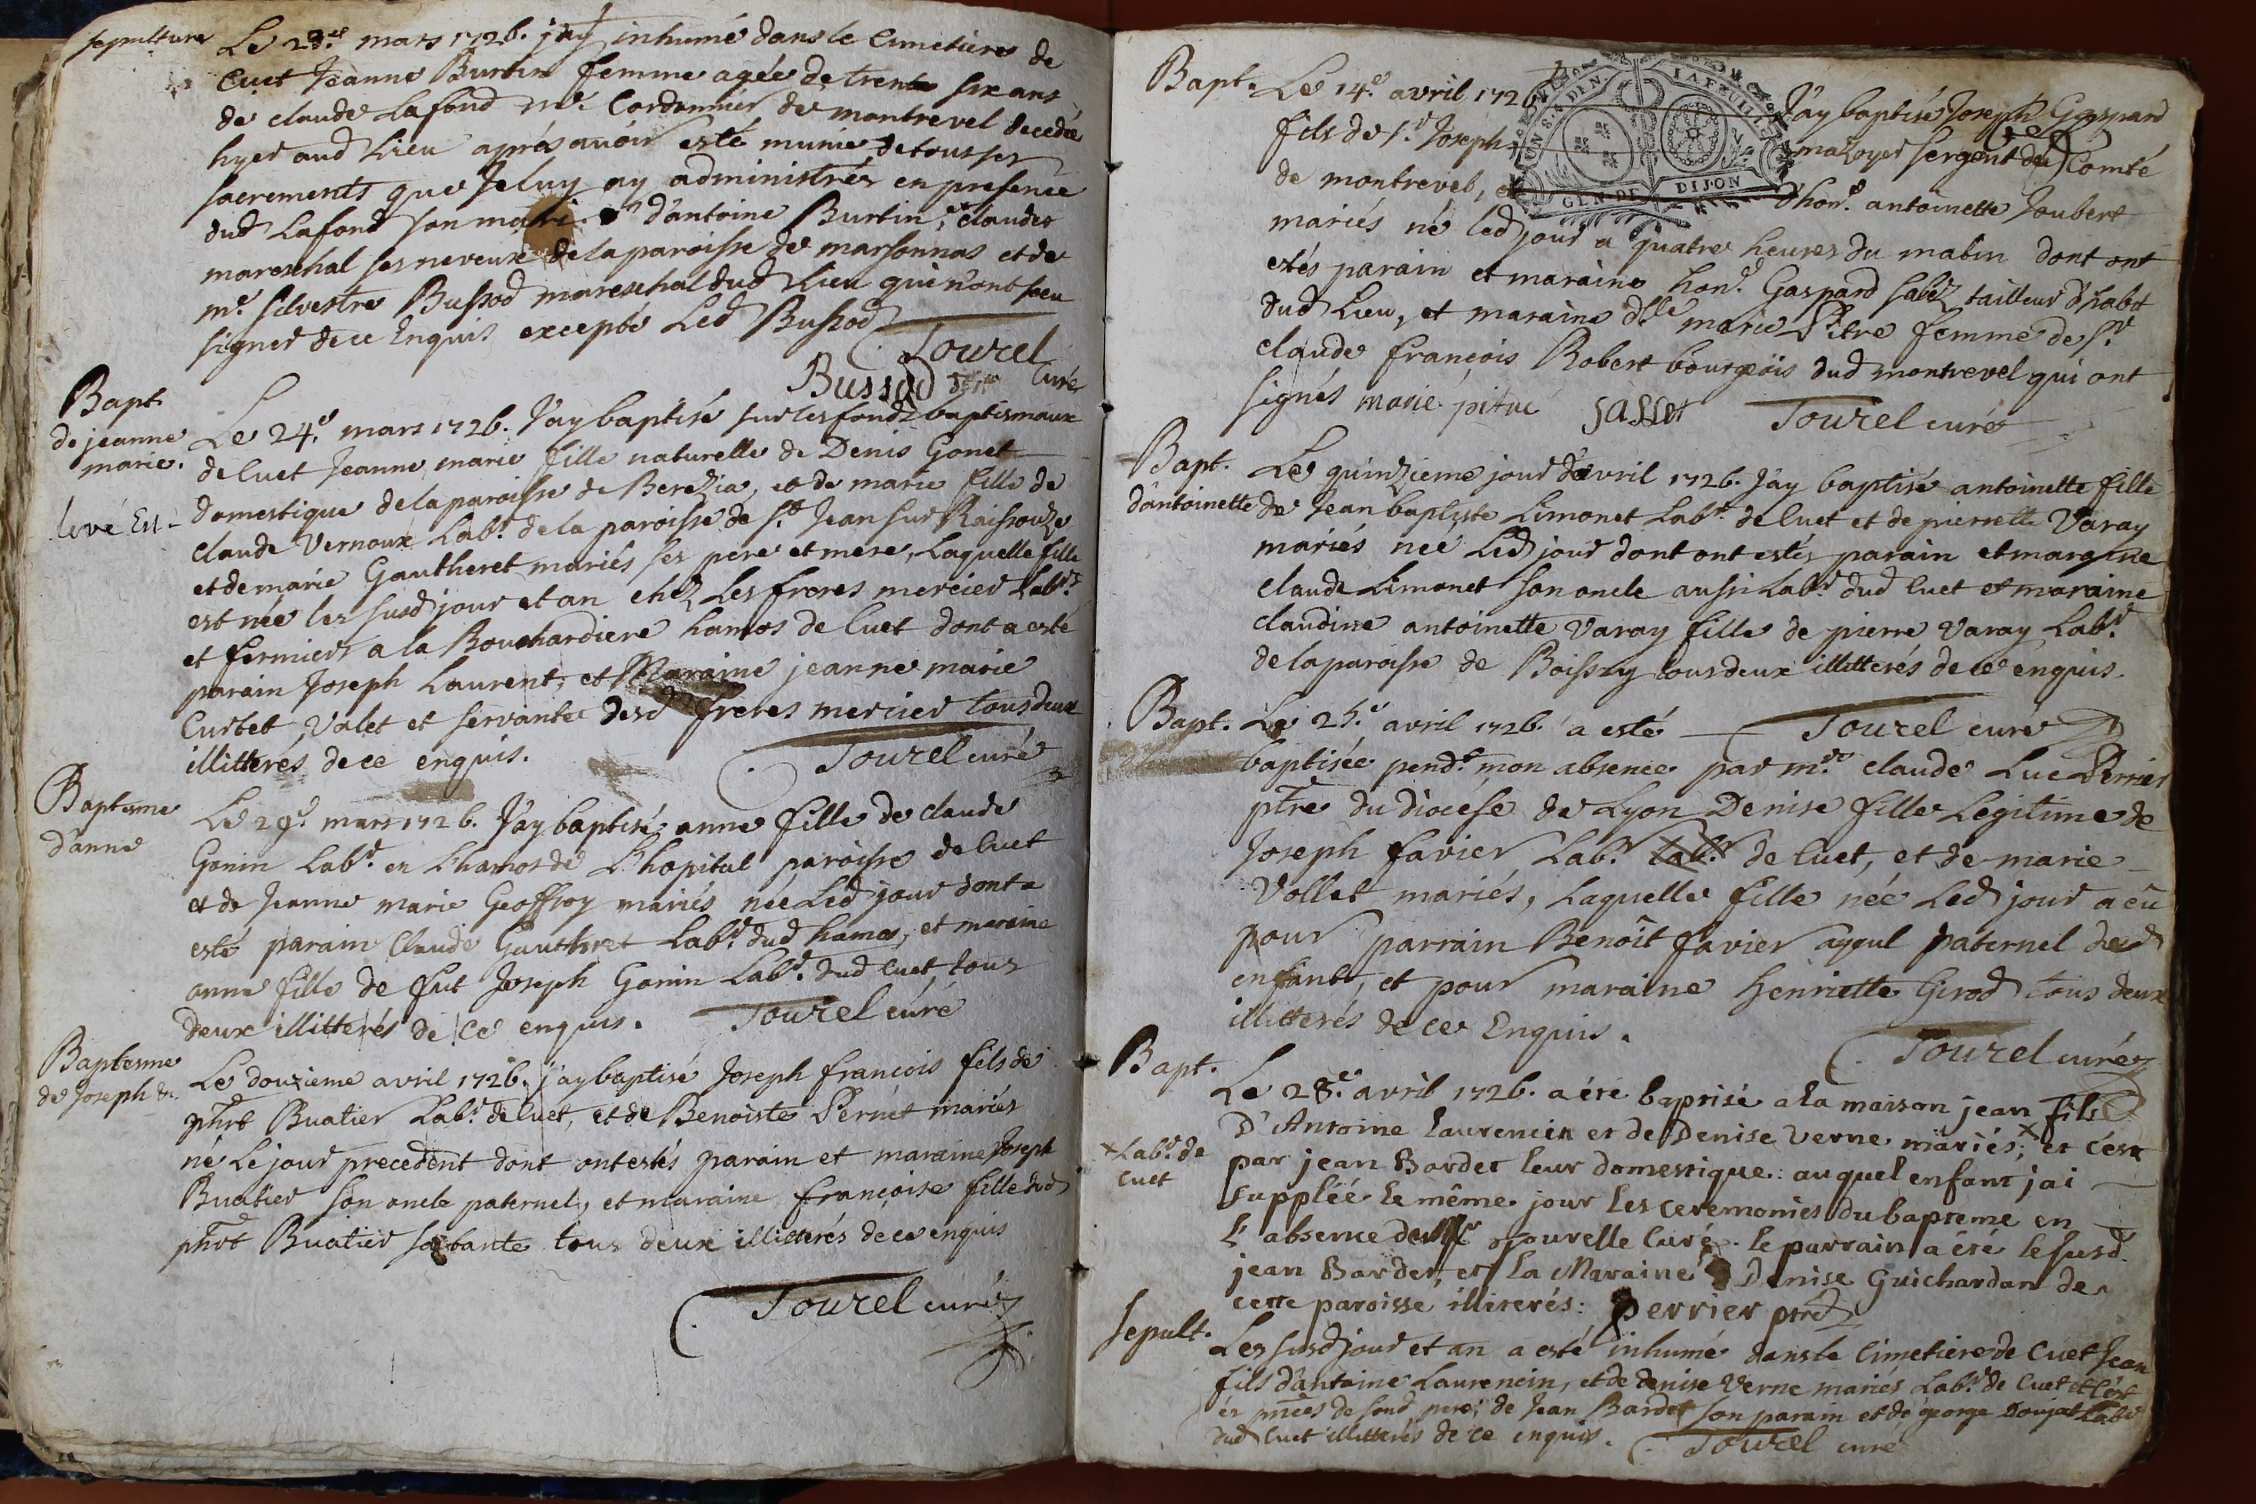 sepulture
Le 23.e mars 1726. j'ay inhumé dans le Cimetiere de
Cuet Jeanne Burtin femme agée de trente six ans
de claude Lafond m.e Cordonnier de montrevel decedée
hyer aud Lieu aprés avoir esté munie de tous ses
sacrements que Je luy ay administrés en presence
dud Lafond son mari d'antoine Burtin, claude
mareschal ses neveux de la paroisse de marsonnas et de
m.e silvestre Bussod mareschal dud Lieu qui n'ont sceu
signer de ce Enquis excepté Led Bussod
Tourel
Bussod curé
Bapt.
de jeanne
marie.
Le 24.e mars 1726. J'ay baptisé sur les fonds baptismaux
de Cuet Jeanne marie fille naturelle de Denis Gonet
domestique de la paroisse de Berezia, et de marie fille de
claude Vernoux Lab.r de la paroisse de S.t Jean sur Raissouze
et de marie Gautheret mariés ses pere et mere, Laquelle fille
est née les susd jour et an chez Les freres mercier Lab.rs
et fermiers a la Bouchardiere hamos de Cuet dont a esté
parain Joseph Laurent, et Maraine jeanne marie
Curtet, Valet et servante desd freres mercier tous deux
illitterés de ce enquis.
Tourel curé
Baptesme
d'anne
Le 29.e mars 1726. J'ay baptisé anne fille de claude
Gonin Lab.r en L'hamos de L'hopital paroisse de Cuet
et de Jeanne marie Geoffroy mariés née Led jour dont a
esté parain Claude Gautheret Lab.r dud hamos, et maraine
anne fille de fut Joseph Gonin Lab.r dud Cuet tous
deux illitterés de ce enquis. Tourel curé
Baptesme
de Joseph
Le douzieme avril 1726. j'ay baptisé Joseph francois fils de
phrt Buatier Lab.r de Cuet, et de Benoiste Pernet mariés
né Le jour precedent dont ont estés parain et maraine Joseph
Buatier son oncle paternel, et maraine françoise fille dud
phrt Buatier sa tante tous deux illitterés de ce enquis
Tourel curé
Bapt.
GEN. DE DIJON
Le 14.e avril 1726 J'ay baptisé Joseph Gaspard
fils de s.r Joseph mazoyer sergent du Comté
de montrevel, et d'hon.e antoinette Joubert
mariés né led jour a quatre heures du matin dont ont
estés parain et maraine hon.e Gaspard sallez tailleur d'habit
dud Lieu, et maraine d.lle marie Pitre femme de s.r
claude françois Robert bourgeois dud montrevel qui ont
signés marie pitre Tourel curé
Bapt.
d'antoinette
Le quinzieme jour d'avril 1726. J'ay baptisé antoinette fille
de Jean baptiste Limonet Lab.r de Cuet et de pierrette Varay
mariés née Led jour dont ont estés parain et maraine
claude Limonet son oncle aussi Lab.r dud Cuet et maraine
claudine antoinette Varay fille de pierre Varay Lab.r
de la paroisse de Boissey tous deux illitterés de ce enquis.
Tourel curé
Bapt.
Le 25.e avril 1726. a esté
baptisée pend.t mon absence par m.re claude Luc Perrier
ptre du diocése de Lyon Denise fille Legitime de
Joseph favier Lab.r Lab.r de Cuet, et de marie
Vollet mariés, Laquelle fille née Led jour a eû
pour parrain Benoît favier ayeul paternel dud
enfant, et pour maraine henriette Girod tous deux
illitterés de ce Enquis.
Tourel curé
Bapt.
Le 28.e avril 1726. a été baptisé a la maison jean fils
D'Antoine Laurencin et de Denise Verne mariés; et c'est
× Lab.r de
Cuet
par jean Bardet leur domestique: auquel enfant j'ai
suppléé le même jour les ceremonies du bapteme en
l'absence de Tourelle Curé. le parrain a été le susd
jean Bardet, et La Maraine Denise Guichardan de
cette paroisse illiterés: Perrier ptre
sepult.
Les susd jour et an a esté inhumé dans le Cimetiere de Cuet Jean
fils d'antoine Laurencin, et de denise Verne mariés Lab.rs de Cuet et c'est
en pnces de sond pere, de Jean Bardet son parain et de george Doujat Lab.r
dud Cuet illitterés de ce enquis. Tourel curé